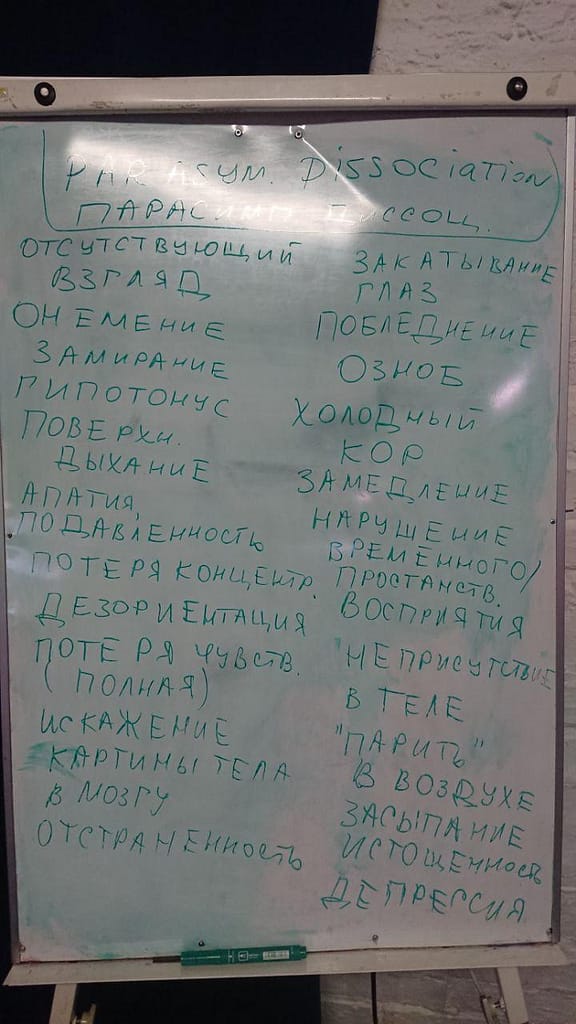 PARASYM. DISSOCIATION
ПАРАСИМП ДИССОЦ.
ОТСУТСТВУЮЩИЙ
ВЗГЛЯД
ОНЕМЕНИЕ
ЗАМИРАНИЕ
ГИПОТОНУС
ПОВЕРХН.
ДЫХАНИЕ
АПАТИЯ,
ПОДАВЛЕННОСТЬ
ПОТЕРЯ КОНЦЕНТР.
ДЕЗОРИЕНТАЦИЯ
ПОТЕРЯ ЧУВСТВ.
(ПОЛНАЯ)
ИСКАЖЕНИЕ
КАРТИНЫ ТЕЛА
В МОЗГУ
ОТСТРАНЕННОСТЬ
ЗАКАТЫВАНИЕ
ГЛАЗ
ПОБЛЕДНЕНИЕ
ОЗНОБ
ХОЛОДНЫЙ
КОР
ЗАМЕДЛЕНИЕ
НАРУШЕНИЕ
ВРЕМЕННОГО/
ПРОСТАНСТВ.
ВОСПРИЯТИЯ
"НЕПРИСУТСТВИЕ
В ТЕЛЕ
"ПАРИТЬ"
В ВОЗДУХЕ
ЗАСЫПАНИЕ
ИСТОЩЕННОСТЬ
ДЕПРЕССИЯ